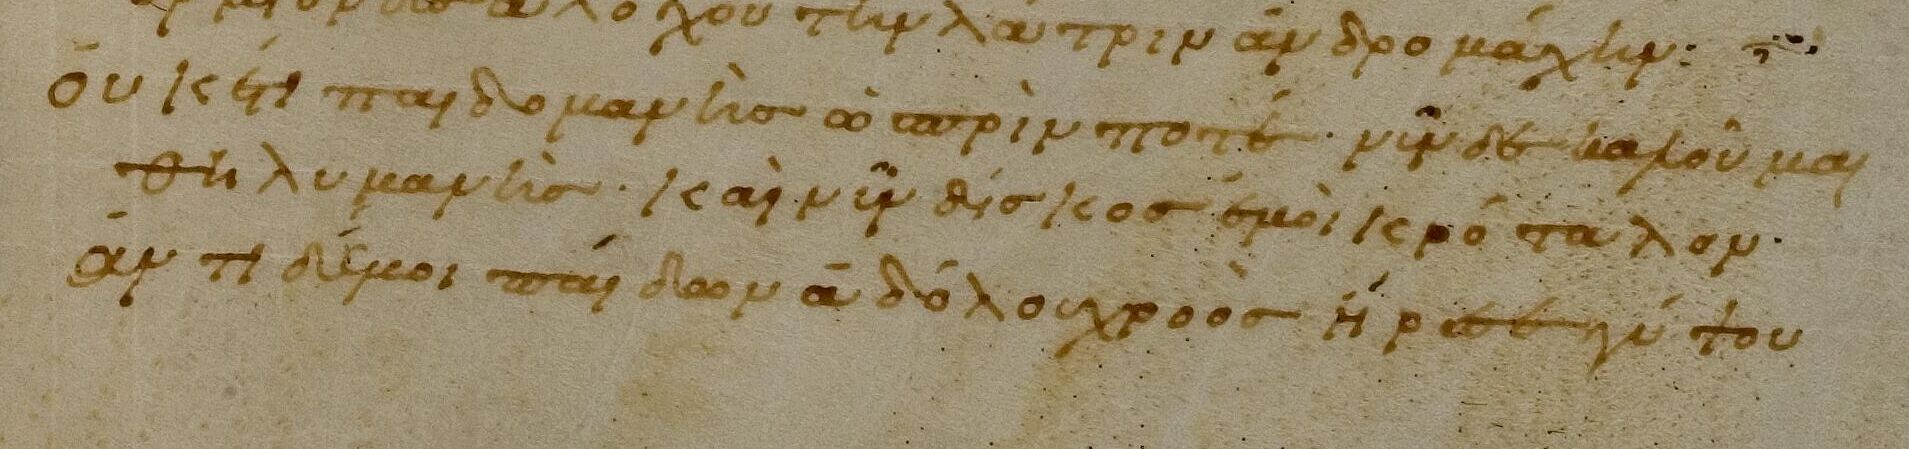 ἀλόχου τὴν λάτριν ἀνδρομάχην:
οὐκέτι παιδομανὴς ὡς πρίν ποτέ· νῦν δὲ καλοῦμαι
θηλυμανὴς· καὶ νῦν δίσκος ἐμοὶ κρόταλον·
ἀντὶ δέ μοι παίδων ἀδόλου χροὸς ἤρεσε γύψου